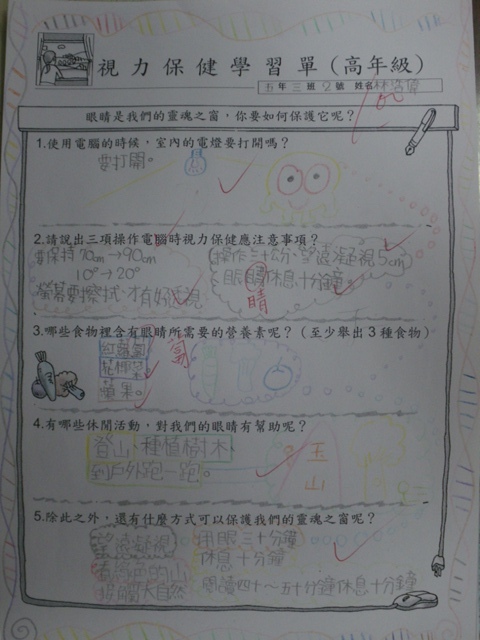 視力保健學習單(高年級)
五年三班2號 姓名林
100
眼睛是我們的靈魂之窗,你要如何保護它呢?
1.使用電腦的時候,室內的電燈要打開嗎?
要打開。
2.請說出三項操作電腦時視力保健應注意事項?
要保持70cm→90cm
10°→20°
螢幕要擦拭,才有好近視
(操作三十分,望遠凝視5cm)
眼睛休息十分鐘。
睛
3.哪些食物裡含有眼睛所需要的營養素呢?(至少舉出3種食物)
紅蘿蔔
蔔
花椰菜
蘋果。
4.有哪些休閒活動,對我們的眼睛有幫助呢?
登山、種植樹木
到戶外跑一跑。
玉山
5.除此之外,還有什麼方式可以保護我們的靈魂之窗呢?
望遠凝視
看綠色的山
接觸大自然
用眼三十分鐘
休息十分鐘
閱讀四十~五十分鐘休息十分鐘